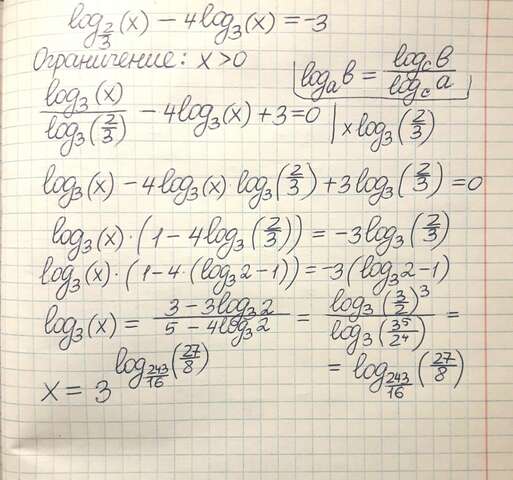 log_{2/3}(x) − 4log_3(x) = −3
Ограничение: x > 0
log_a b = log_c b / log_c a
log_3(x) / log_3(2/3) − 4log_3(x) + 3 = 0 | × log_3(2/3)
log_3(x) − 4log_3(x) log_3(2/3) + 3log_3(2/3) = 0
log_3(x) · (1 − 4log_3(2/3)) = −3log_3(2/3)
log_3(x) · (1 − 4 · (log_3 2 − 1)) = −3(log_3 2 − 1)
log_3(x) = (3 − 3log_3 2) / (5 − 4log_3 2) = log_3(3/2)^3 / log_3(3^5/2^4) =
= log_{243/16}(27/8)
x = 3^{log_{243/16}(27/8)}